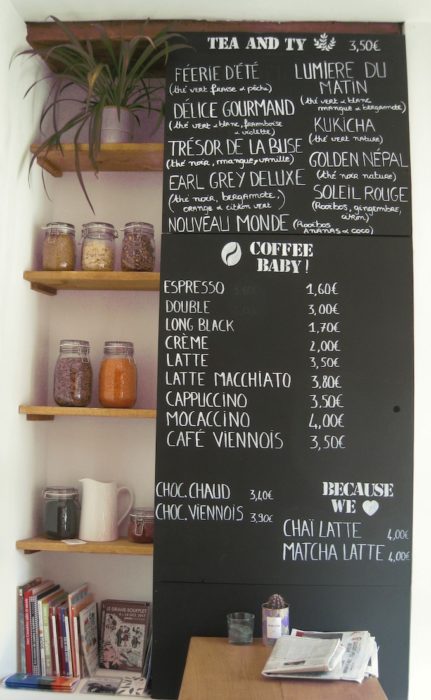 TEA AND TY 3,50€
FÉERIE D'ÉTÉ
(thé vert fraise & pêche)
DÉLICE GOURMAND
(thé vert & blanc, framboise
& violette)
TRÉSOR DE LA BUSE
(thé noir, mangue, vanille)
EARL GREY DELUXE
(thé noir, bergamote,
orange & citron vert)
NOUVEAU MONDE (Rooibos
ananas & coco)
LUMIERE DU
MATIN
(thé vert & blanc
mangue & bergamote)
KUKICHA
(thé vert nature)
GOLDEN NÉPAL
(thé noir nature)
SOLEIL ROUGE
(Rooibos, gingembre,
citron)
COFFEE
BABY !
ESPRESSO 1,60€
DOUBLE 3,00€
LONG BLACK 1,70€
CRÈME 2,00€
LATTE 3,50€
LATTE MACCHIATO 3,80€
CAPPUCCINO 3,50€
MOCACCINO 4,00€
CAFÉ VIENNOIS 3,50€
CHOC. CHAUD 3,40€
CHOC. VIENNOIS 3,90€
BECAUSE
WE
CHAÏ LATTE 4,00€
MATCHA LATTE 4,00€
LE GRAND SOUFFLET